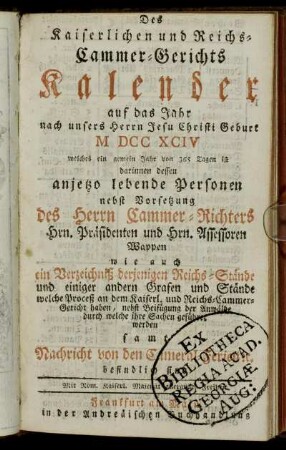 Des
Kaiserlichen und Reichs-
Cammer-Gerichts
Kalender
auf das Jahr
nach unsers Herrn Jesu Christi Geburt
M DCC XCIV
welches ein gemein Jahr von 365 Tagen ist
darinnen dessen
anjetzo lebende Personen
nebst Vorsetzung
des Herrn Cammer-Richters
Hrn. Präsidenten und Hrn. Assessoren
Wappen
wie auch
ein Verzeichniß derjenigen Reichs-Stände
und einiger andern Grafen und Stände
welche Proceß an dem Kaiserl. und Reichs-Cammer-
Gericht haben, nebst Beifügung der Anwälde
durch welche ihre Sachen geführet
werden
samt
Nachricht von den
befindlich
Mit Röm. Kaiserl.
Frankfurt am
in der Andreäischen Buchhandlung
Ex
BIBLIOTHECA
REGIA ACAD.
GEORGIÆ
AUG: